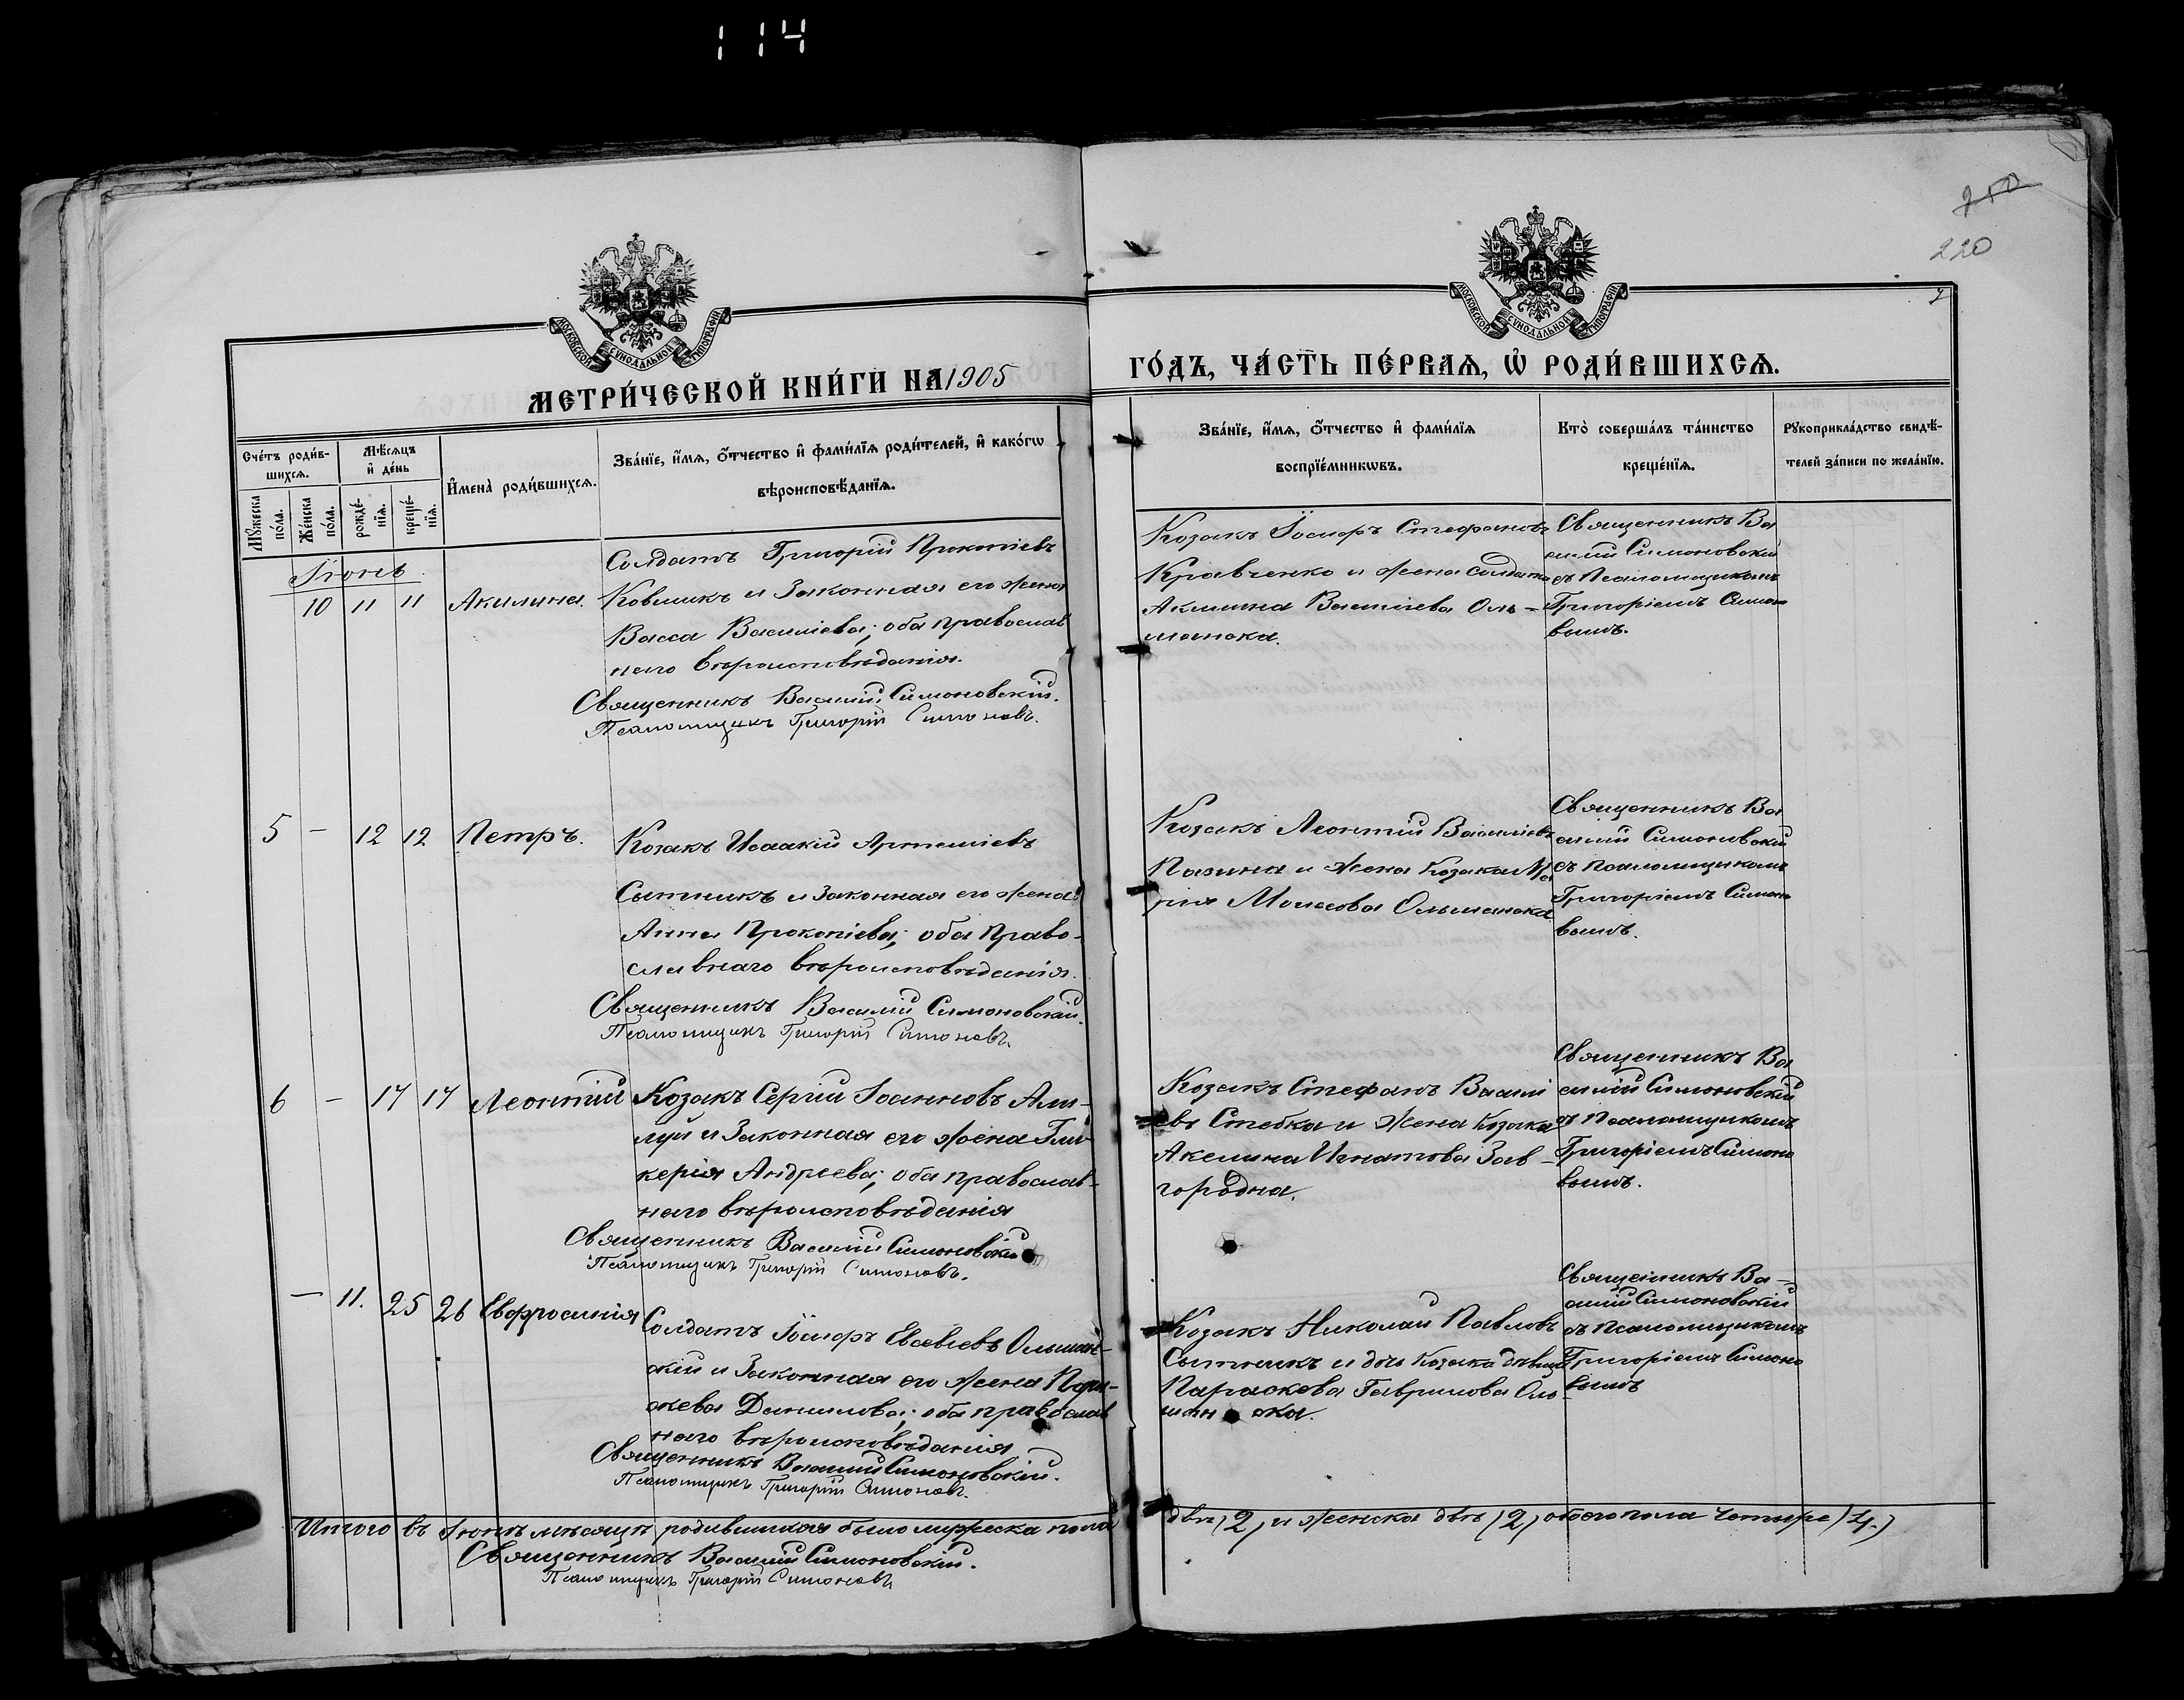 114
250
220
7
МОСКОВСКОЙ СѴНОДАЛЬНОЙ ТИПОГРАФІИ
МОСКОВСКОЙ СѴНОДАЛЬНОЙ ТИПОГРАФІИ
МЕТРИ́ЧЕСКОЙ КНИ́ГИ НА 1905
ГО́ДЪ, ЧА́СТЬ ПЕ́РВАѦ, Ѡ҆ РОДИ́ВШИХСѦ.
Сче́тъ роди́вшихсѧ.
Мꙋ́жеска по́ла.
Же́нска по́ла.
Мѣ́сѧцъ и҆ де́нь
рожде́нїѧ.
креще́нїѧ.
И҆мена̀ роди́вшихсѧ.
Зва́нїе, и҆́мѧ, ѻ҆́тчество и҆ фами́лїѧ роди́телей, и҆ како́гѡ
вѣроисповѣ́данїѧ.
Зва́нїе, и҆́мѧ, ѻ҆́тчество и҆ фами́лїѧ
воспрїе́мникѡвъ.
Кто̀ соверша́лъ та́инство
креще́нїѧ.
Рꙋкоприкла́дство свидѣ́-
телей за́писи по жела́нїю.
Іюнь
10 11 11 Акилина.
Солдатъ Григорій Прокопіевъ
Ковшикъ и законная его жена
Васса Василіева; оба православ
наго вѣроисповѣданія.
Священникъ Василій Симоновскій.
Псаломщикъ Григорій Симоновъ.
Козакъ Іосифъ Стефановъ
Кравченко и жена солдата
Акилина Василіева Оль-
шанска.
Священникъ Ва
силій Симоновскій
съ Псаломщикомъ
Григоріемъ Симоно
вымъ.
5 - 12 12 Петръ.
Козакъ Исаакій Артеміевъ
Сытникъ и законная его жена
Анна Прокопіева; оба право-
славнаго вѣроисповѣданія.
Священникъ Василій Симоновскій.
Псаломщикъ Григорій Симоновъ.
Козакъ Леонтій Василіевъ
и жена Козака Ма
рія Моисеова Ольшанска
Священникъ Ва
силій Симоновскій
съ Псаломщикомъ
Григоріемъ Симоно
вымъ.
6 - 17 17 Леонтій
Козакъ Сергій Іоанновъ
и законная его жена Гли-
керія Андреева; оба православ-
наго вѣроисповѣданія
Священникъ Василій Симоновскій
Псаломщикъ Григорій Симоновъ.
Козакъ Стефанъ Васил
евъ Стебка и жена Козака
Акелина Игнатова Зав-
городна.
Священникъ Ва
силій Симоновскій
съ Псаломщикомъ
Григоріемъ Симоно
вымъ.
- 11. 25 26 Евфросинія
Солдатъ Іосифъ Евсевіевъ Ольшан-
скій и законная его жена Пара-
скева Данилова; оба православ
наго вѣроисповѣданія
Священникъ Василій Симоновскій.
Псаломщикъ Григорій Симоновъ.
Козакъ Николай Павловъ
Сытникъ и дочь Козака дѣвица
Параскева Гаврилова Оль-
шанска.
Священникъ Ва-
силій Симоновскій
съ Псаломщикомъ
Григоріемъ Симоно
вымъ
Итого въ Іюнѣ мѣсяцѣ родившихся было мужеска пола два (2) и женска двѣ (2) обоего пола четыре (4.)
Священникъ Василій Симоновскій.
Псаломщикъ Григорій Симоновъ